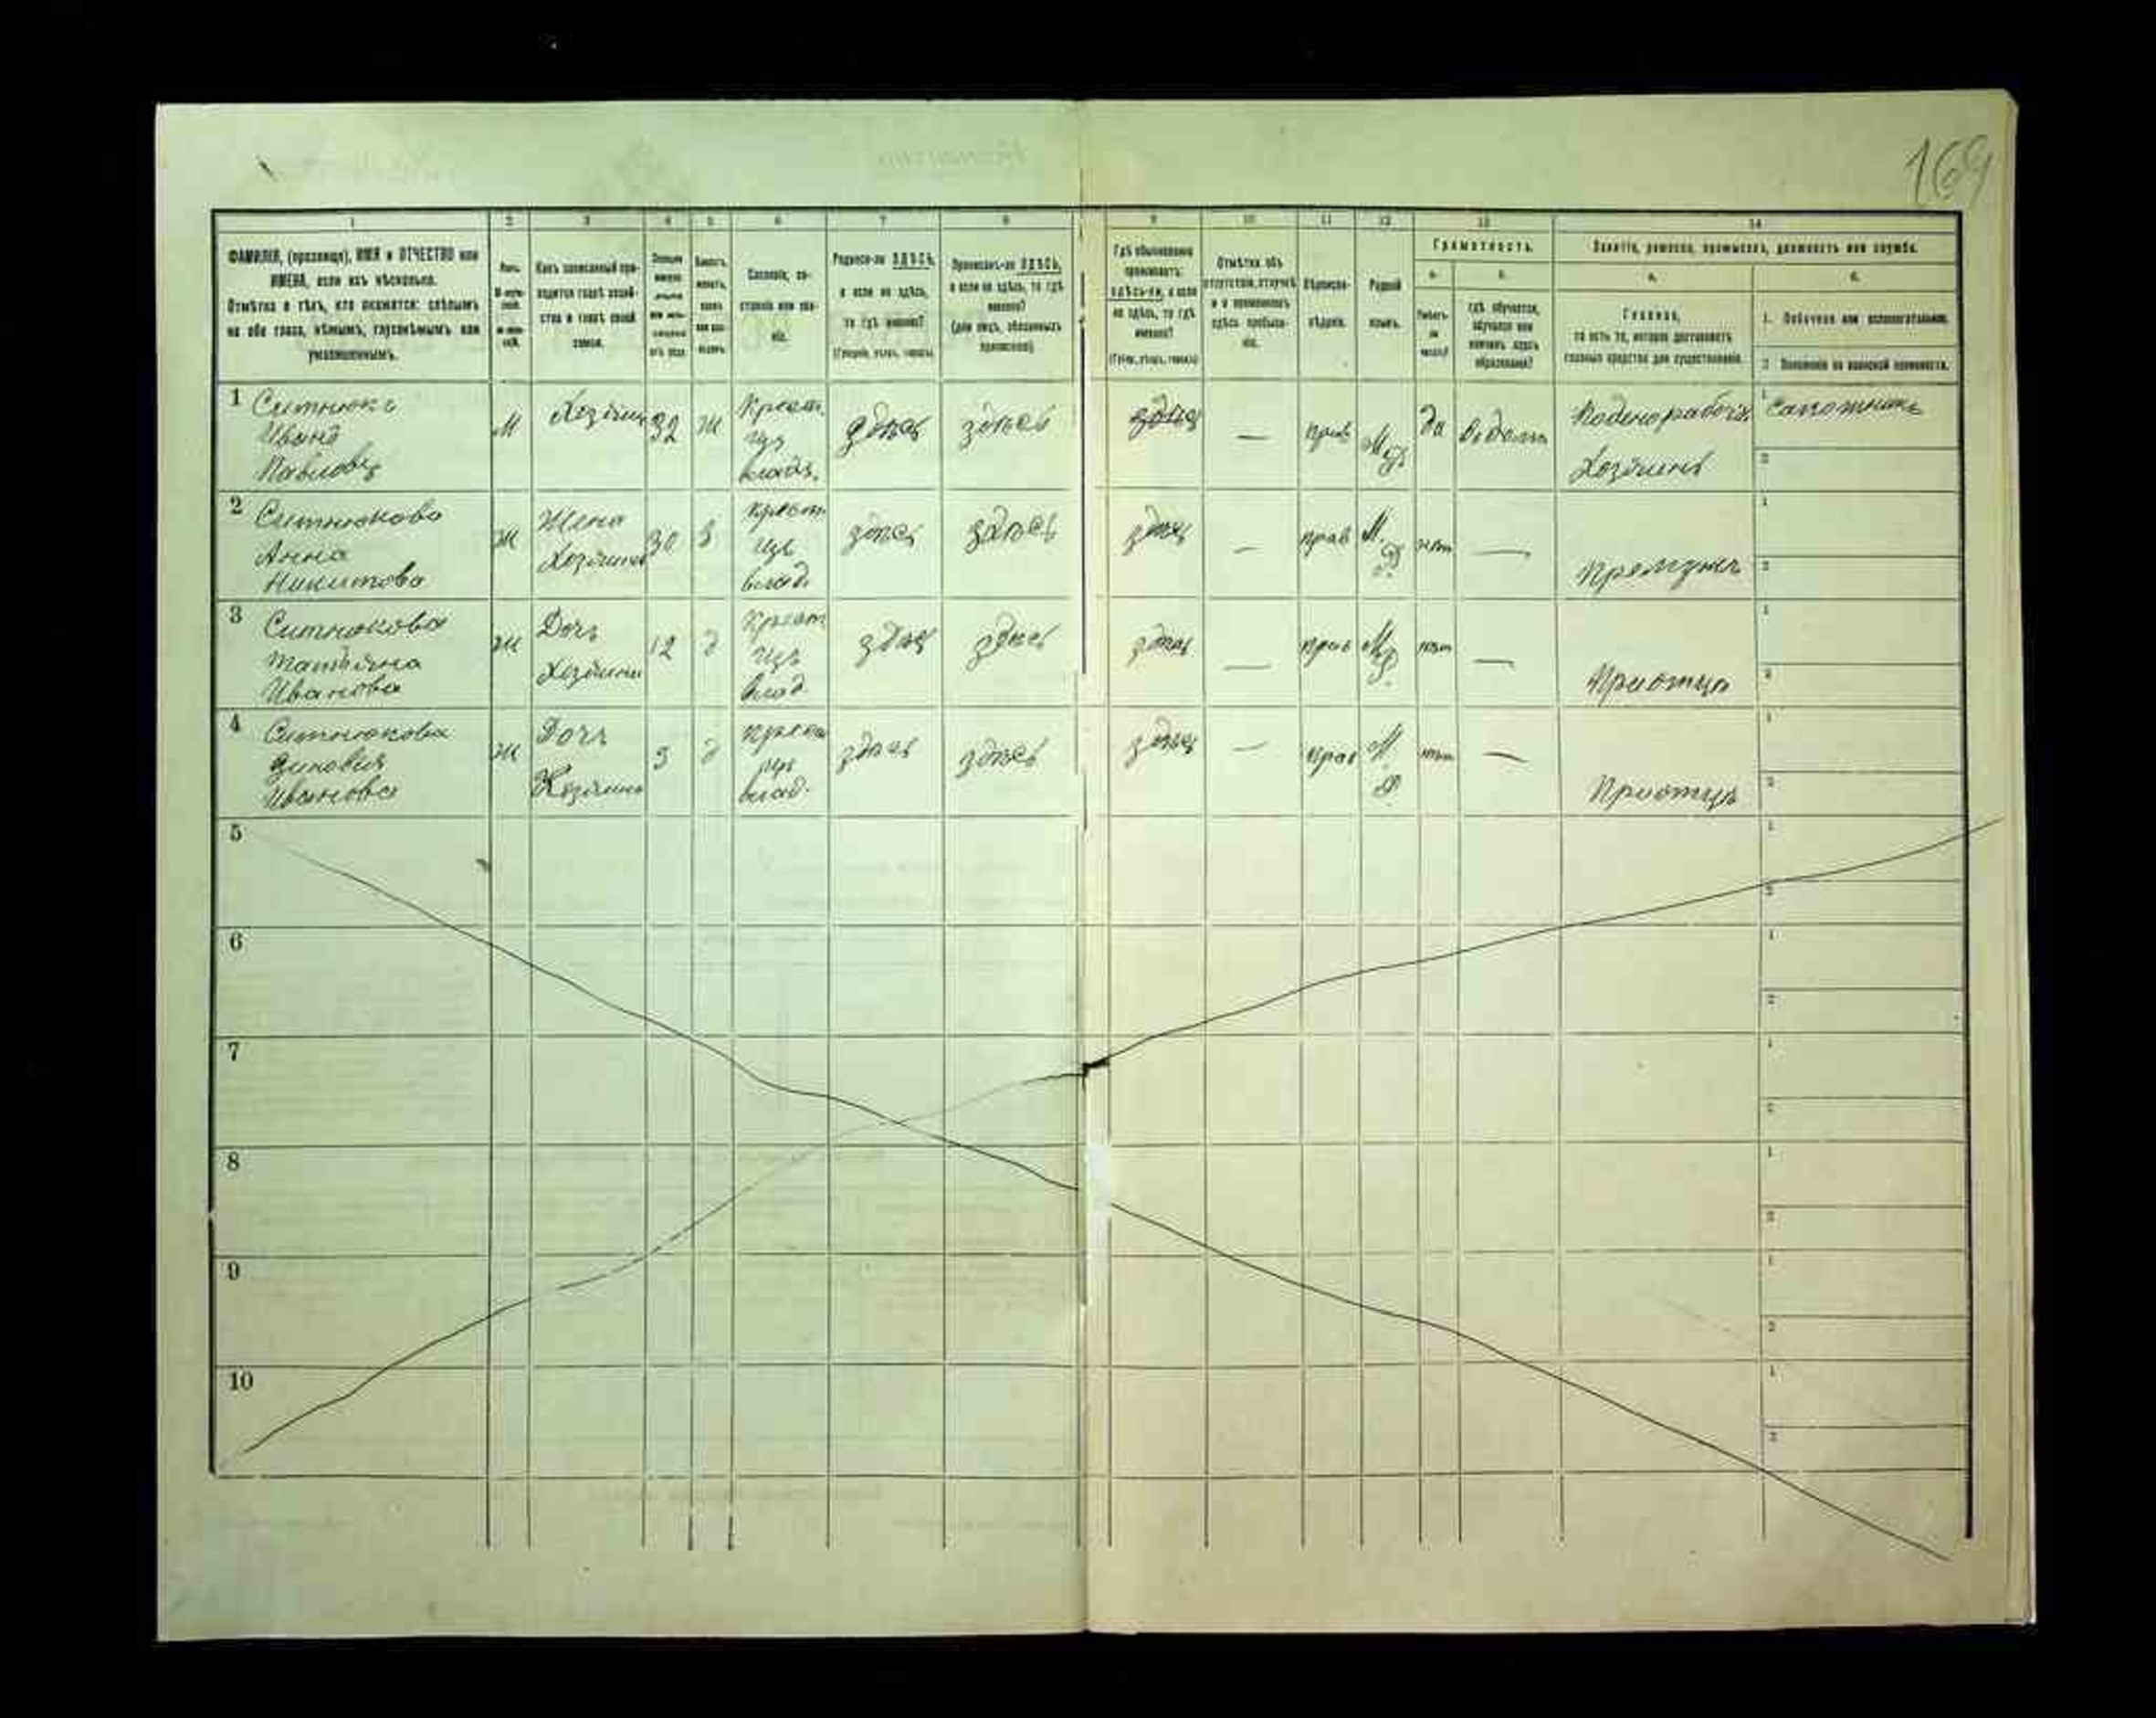 169
1 2 3 4 5 6 7 8 9 10 11 12 13 14
ФАМИЛІЯ, (прозвище), ИМЯ и ОТЧЕСТВО или
ИМЕНА, если ихъ нѣсколько.
Отмѣтка о тѣхъ, кто окажется: слѣпымъ
на оба глаза, нѣмымъ, глухонѣмымъ или
умалишеннымъ.
Какъ записанный при-
ходится главѣ хозяй-
ства и главѣ своей
семьи.
Сословіе, со-
стояніе или зва-
ніе.
Родился-ли ЗДѢСЬ,
а если не здѣсь,
то гдѣ именно?
(Губернія, уѣздъ, городъ).
Приписанъ-ли ЗДѢСЬ,
а если не здѣсь, то гдѣ
именно?
(для лицъ, обязанныхъ
припискою)
Гдѣ обыкновенно
проживаетъ:
здѣсь-ли, а если
не здѣсь, то гдѣ
именно?
(Губер., уѣздъ, городъ)
Отмѣтка объ
отсутствіи, отлучкѣ
и о временномъ
здѣсь пребыва-
ніи.
Вѣроиспо-
вѣданіе.
Родной
языкъ.
Грамотность.
а. б.
Умѣетъ-
ли
читать?
гдѣ обучается,
обучался или
кончилъ курсъ
образованія?
Занятіе, ремесло, промыселъ, должность или служба.
а. б.
Главное,
то есть то, которое доставляетъ
главныя средства для существованія.
1. Побочное или вспомогательное.
2. Положеніе по воинской повинности.
1 Ситнюкъ
Иванъ
Павловъ
М Хозяинъ 32 Ж Крест.
изъ
владѣ.
здѣсь здѣсь здѣсь — прав М Да
Хозяинъ
1 Сапожникъ
2
2 Ситнюкова
Анна
Никитова
Ж Жена
Хозяина
30 З крест
изъ
влад.
здѣсь здѣсь здѣсь — прав М. нѣт —
При мужѣ
1
2
3 Ситнюкова
Татьяна
Иванова
Ж Дочь
Хозяина
12 д Крест
изъ
влад
здѣсь здѣсь здѣсь — прав М нѣт —
При отцѣ
1
2
4 Ситнюкова
Зиновия
Иванова
Ж Дочь
Хозяина
д крест
изъ
влад.
здѣсь здѣсь здѣсь — прав М. нѣт —
При отцѣ
1
2
5
1
2
6
1
2
7
1
2
8
1
2
9
1
2
10
1
2